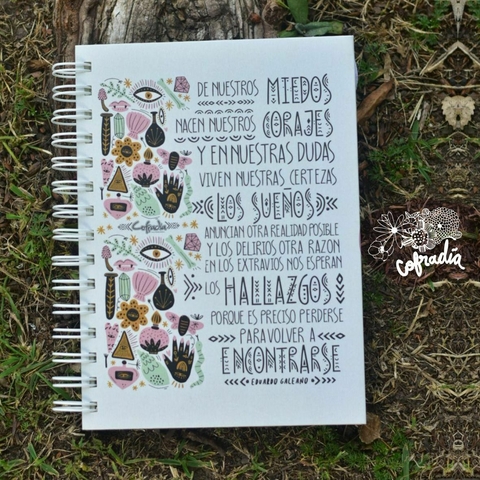 DE NUESTROS MIEDOS
NACEN NUESTROS CORAJES
Y EN NUESTRAS DUDAS
VIVEN NUESTRAS CERTEZAS
LOS SUEÑOS
ANUNCIAN OTRA REALIDAD POSIBLE
Y LOS DELIRIOS OTRA RAZON
EN LOS EXTRAVIOS NOS ESPERAN
LOS HALLAZGOS
PORQUE ES PRECISO PERDERSE
PARA VOLVER A
ENCONTRARSE
EDUARDO GALEANO
Cofradía
cofradía